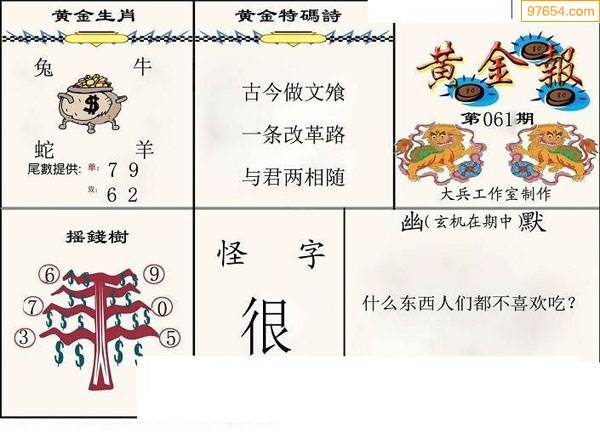 97654.com
黄金生肖
兔 牛
$
蛇 羊
尾數提供: 单: 7 9
双: 6 2
黄金特碼詩
古今做文飧
一条改革路
与君两相随
黄金報
第061期
大兵工作室制作
摇錢樹
6 9
7 0
3 5
$ $ $ $ $ $ $ $
怪 字
很
幽(玄机在期中)默
什么东西人们都不喜欢吃?